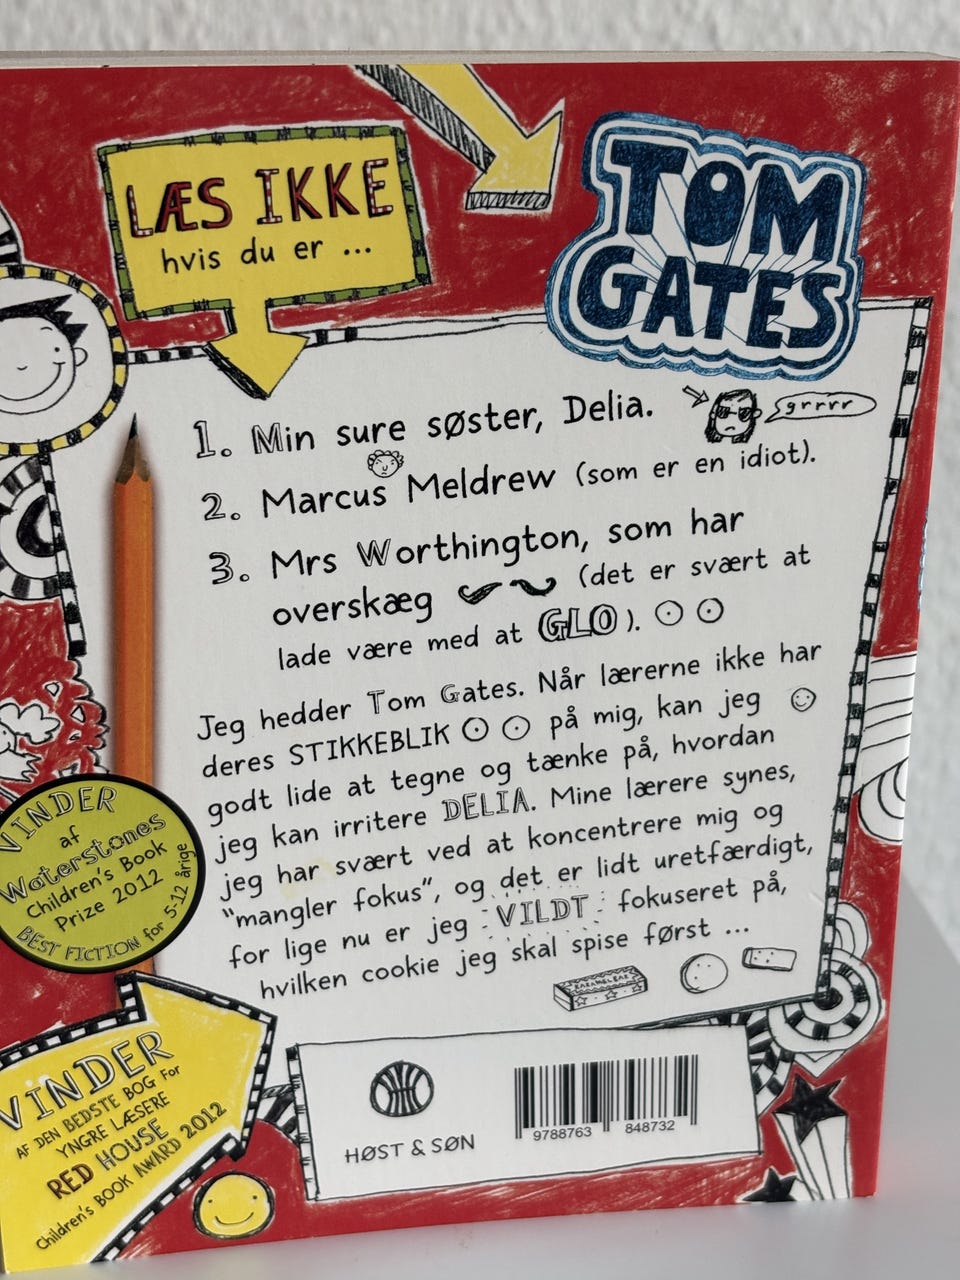 LÆS IKKE
hvis du er ...
TOM
GATES
1. Min sure søster, Delia.
grrrr
2. Marcus Meldrew (som er en idiot).
3. Mrs Worthington, som har
overskæg (det er svært at
lade være med at GLO).
Jeg hedder Tom Gates. Når lærerne ikke har
deres STIKKEBLIK på mig, kan jeg
godt lide at tegne og tænke på, hvordan
jeg kan irritere DELIA. Mine lærere synes,
jeg har svært ved at koncentrere mig og
"mangler fokus", og det er lidt uretfærdigt,
for lige nu er jeg VILDT fokuseret på,
hvilken cookie jeg skal spise først ...
KARAMEL BAR
VINDER
af
Waterstones
Children's Book
Prize 2012
BEST FICTION for 5-12 årige
VINDER
AF DEN BEDSTE BOG For
YNGRE LÆSERE
RED HOUSE
Children's BOOK AWARD 2012
HØST & SØN
9788763 848732